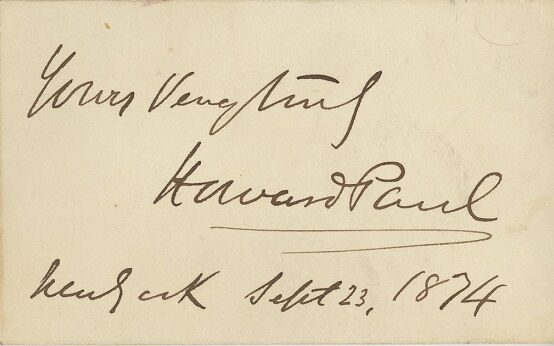 Yours Very truly
Howard Paul
New York Sept 23, 1874